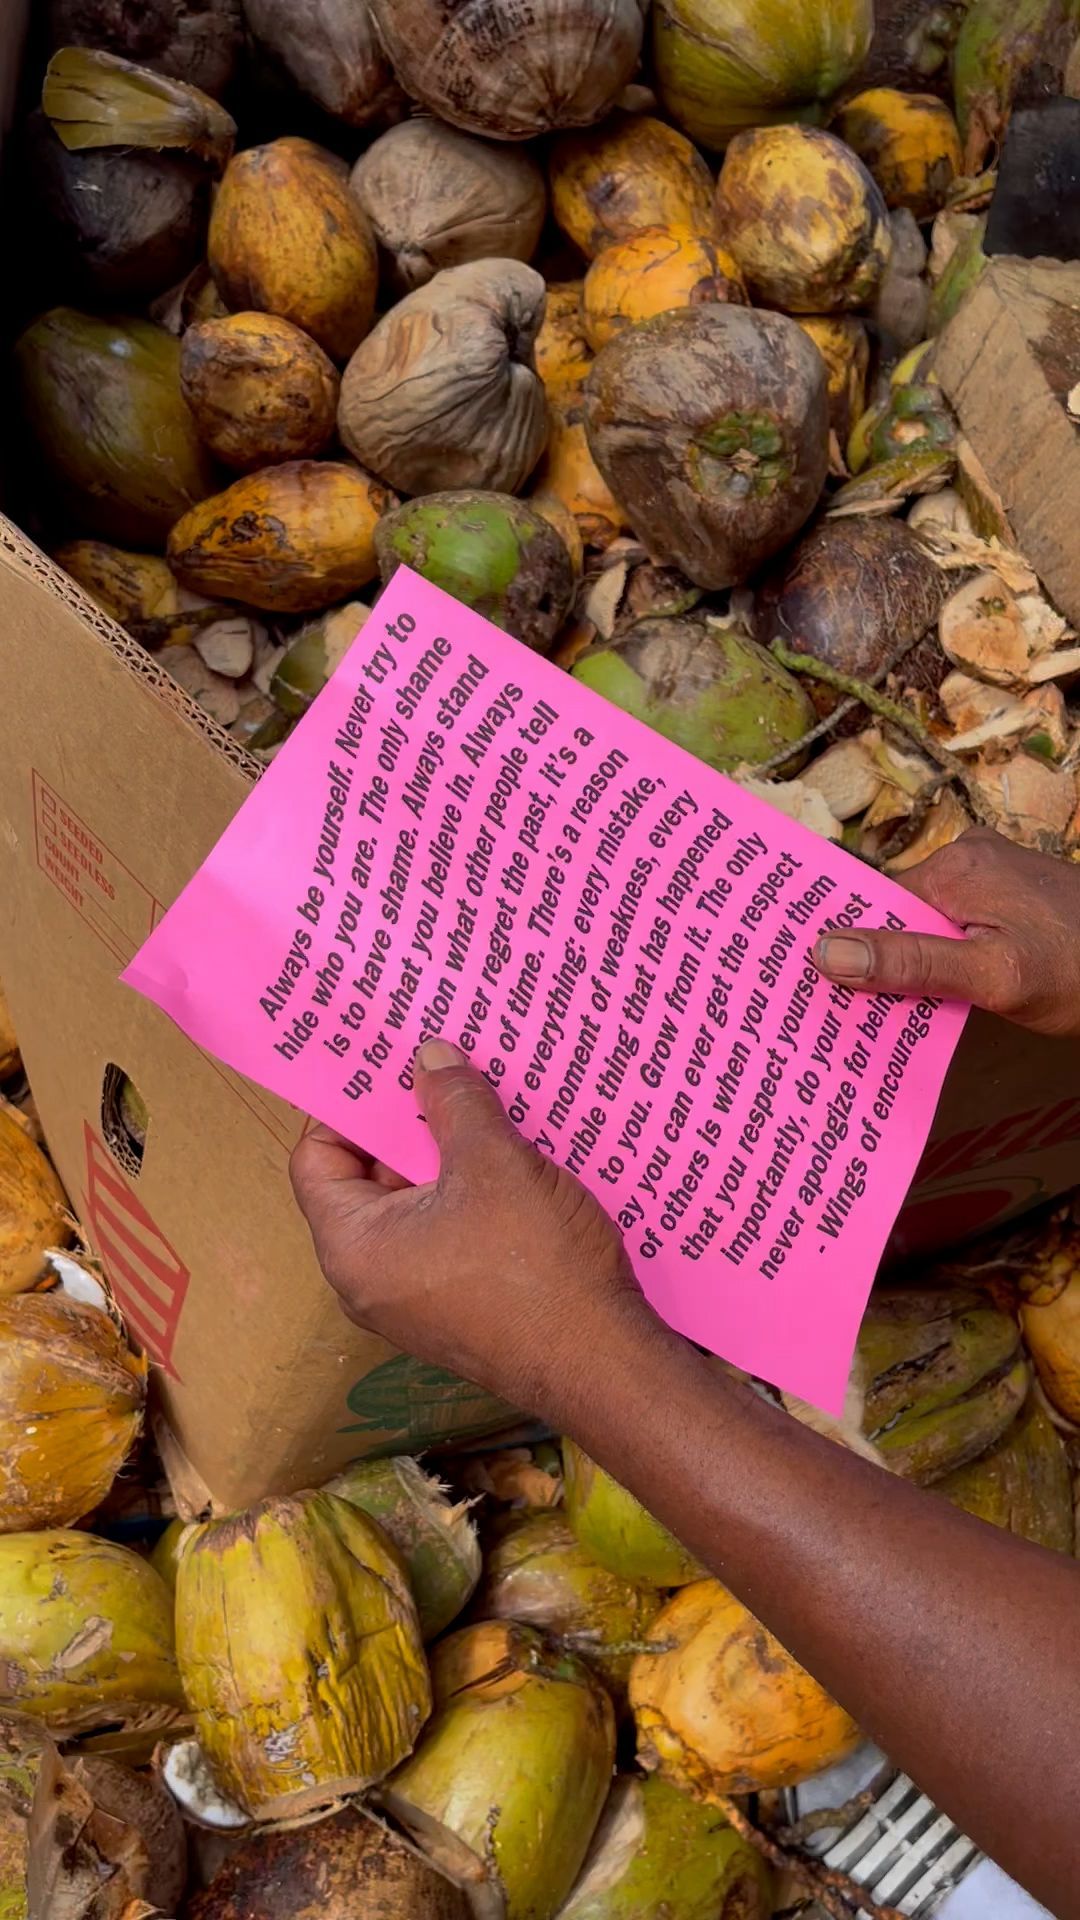 Always be yourself. Never try to
hide who you are. The only shame
is to have shame. Always stand
up for what you believe in. Always
what other people tell
regret the past, it's a
of time. There's a reason
everything: every mistake,
moment of weakness, every
thing that has happened
to you. Grow from it. The only
you can ever get the respect
of others is when you show them
that you respect
importantly, do your
never apologize for
- Wings of
SEEDED
SEEDLESS
COUNT
WEIGHT